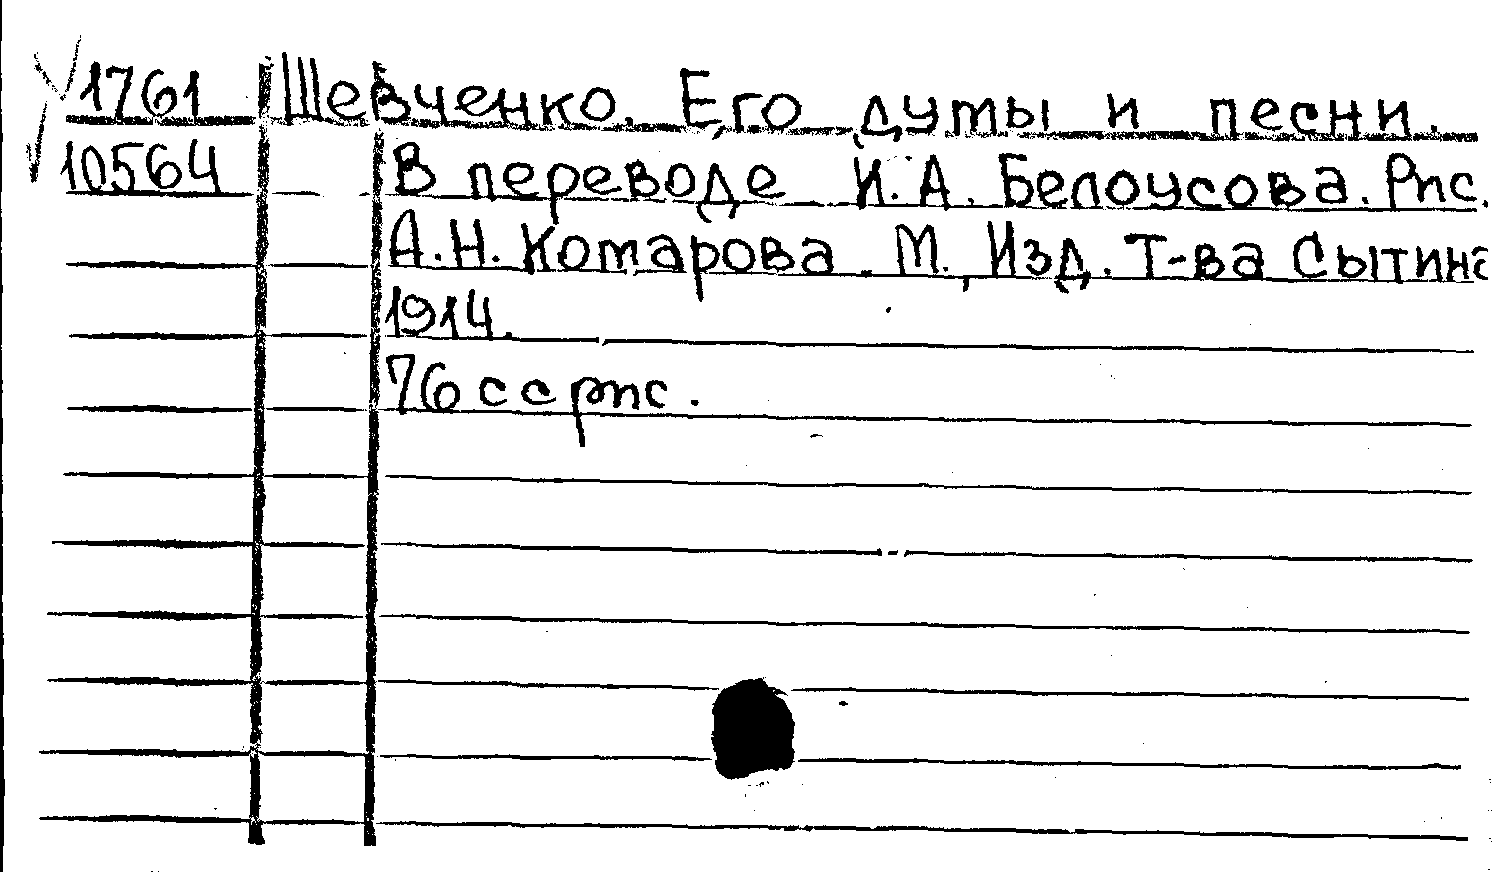 1761 Шевченко. Его думы и песни.
10564 В переводе И. А. Белоусова. Рис.
А. Н. Комарова. М., Изд. Т-ва Сытина
1914.
76 с с рис.